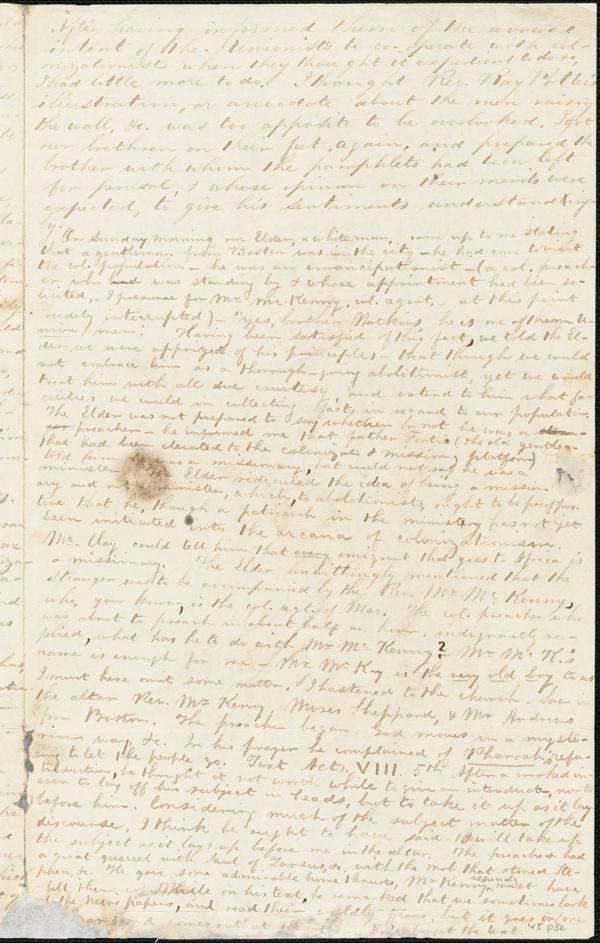 After having informed them of the avowed
intent of the Unionists to co-operate with col-
onizationists when they thought it expedient to do so,
I had little more to do. I thought Rev. Ray Potter's
illustration, or anecdote about the men raising
the wall, &c. was too apposite to be overlooked. I got
our brethren on their feet again, and prepared the
brother with whom the pamphlets had been left
for perusal, & whose opinion on their merits were
expected, to give his sentiments understanding-
ly.
On Sunday morning our Elder, a white man, came up to me stating
that a gentleman from Boston was in the city — he had come to visit
the col. population — he was an emancipationist — (a col. preach-
er who was standing by & whose appointment had been so-
licited, I presume for Mr. McKenny, col. agent, at this point
rudely interrupted) — "yes, brother Watkins, he is one of them U-
nion men." Having been satisfied of this fact, we told the El-
der we were apprized of his principles — that though we could
not embrace him as a thorough-going abolitionist, yet we would
treat him with all due courtesy, and extend to him what fa-
cilities we could in collecting facts in regard to our population.
The Elder was not prepared to say whether or not he was a
preacher — he informed me that father (the old gentle-
that had been elevated to the colonizat & mission platform)
told him was a missionary, but would not say he was a
minister. Elder ridiculed the idea of being a mission-
ary and minister, which, to abolitionists, ought to be
tive that he, though a patriarch in the ministry has not yet
been initiated into the arcana of colonizationism.
Mr. Clay could tell him that every emigrant that goes to Africa is
a missionary. The Elder unwittingly mentioned that the
stranger was to be accompanied by the Rev. Mr. McKenny,
who, you know, is the col. agt. of Mas. The col. preacher who
was about to preach in about half an hour, indignantly re-
plied, what has he to do with Mr McKenny? Mr. McK.'s
name is enough for me — Mr McKny is the very old boy to us
I must here omit some matter. I hastened to the church — saw in
the altar Rev. Mr. Kenny, Moses Sheppard, & Mr Andrews
from Boston. The preacher began: God moves in a myste-
rious way, &c. In his prayer he complained of Pharoah's refu-
sing to let the people go. Text Acts. VIII. 5th After a crooked in-
troduction, he thought it not worth while to give an introducti, nor
even to lay off his subject in heads, but to take it up as it lay
before him. Considering much of the subject matter of the
discourse, I think he ought to have said I will take up
the subject as it lays up before me in the altar. The preacher had
a great quarrel with Saul of Tarsus, &c. with the mob that stoned Ste-
phen, &c. He gave some admirable home thrusts, Mr Kenny must have
felt them. While on his text, he remarked that we sometimes look
the news papers, and read their plans, but it goes in one
comes out at the text.
v5 p32